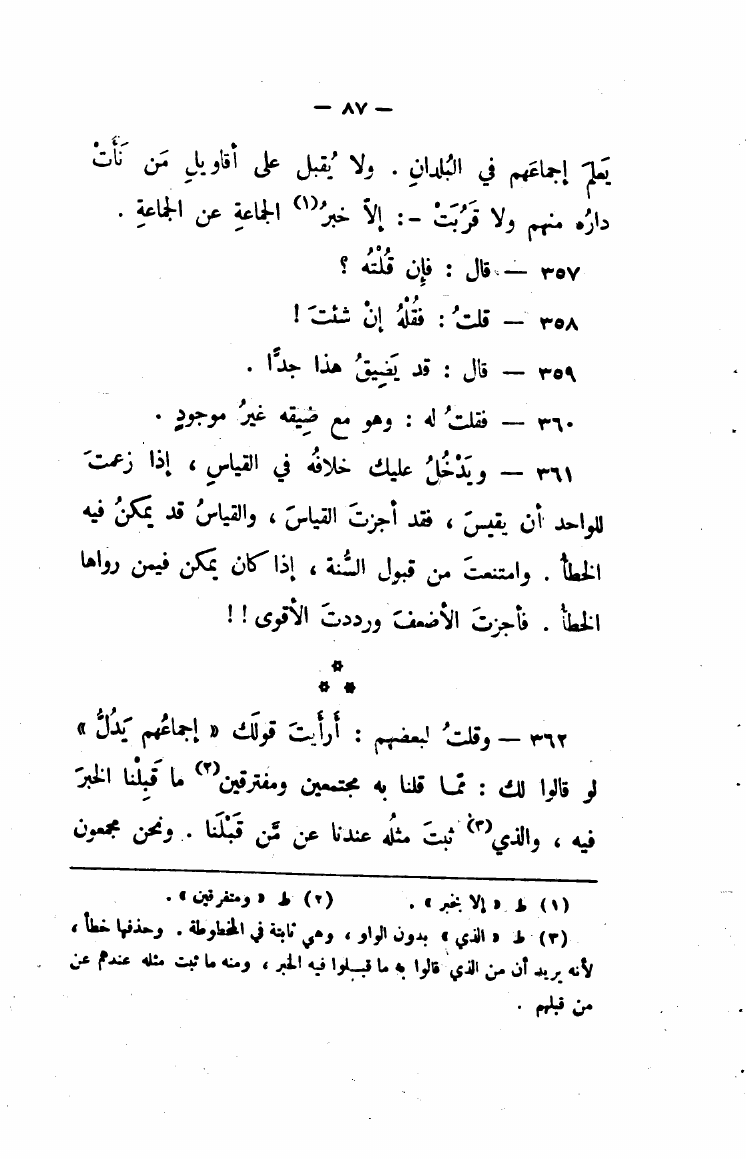 — ٨٧ —
يَعلمَ إجماعَهم في البُلدانِ . ولا يُقبل على أقاويلِ مَن نَأَتْ
دارُه منهم ولا قَرُبَتْ - : إلاَّ خبرُ(١) الجماعةِ عن الجماعةِ .
٣٥٧ — قال : فإن قُلْتُه ؟
٣٥٨ — قلتُ : فقُلْهُ إنْ شئتَ !
٣٥٩ — قال : قد يَضِيقُ هذا جدًّا .
٣٦٠ — فقلتُ له : وهو مع ضِيقه غيرُ موجودٍ .
٣٦١ — ويَدْخُلُ عليك خلافُه في القياسِ ، إذا زعمتَ
للواحد أن يقيسَ ، فقد أجزتَ القياسَ ، والقياسُ قد يمكنُ فيه
الخطأُ . وامتنعتَ من قبول السُّنة ، إذا كان يمكن فيمن رواها
الخطأُ . فأجزتَ الأضعفَ ورددتَ الأقوى ! !
* * *
٣٦٢ — وقلتُ لبعضهم : أَرأَيتَ قولَك « إجماعُهم يَدُلُّ »
لو قالوا لك : ممَّا قلنا به مجتمعين ومفترقين(٢) ما قَبِلْنا الخبرَ
فيه ، والذي(٣) ثبتَ مثلُه عندنا عن مَّن قَبْلَنا . ونحن مجمعون
(١) ط « إلا بخبر » . (٢) ط « ومتفرقين » .
(٣) ط « الذي » بدون الواو ، وهي ثابتة في المخطوطة . وحذفها خطأ ،
لأنه يريد أن من الذي قالوا به ما قبلوا فيه الخبر ، ومنه ما ثبت مثله عندهم عن
من قبلهم .